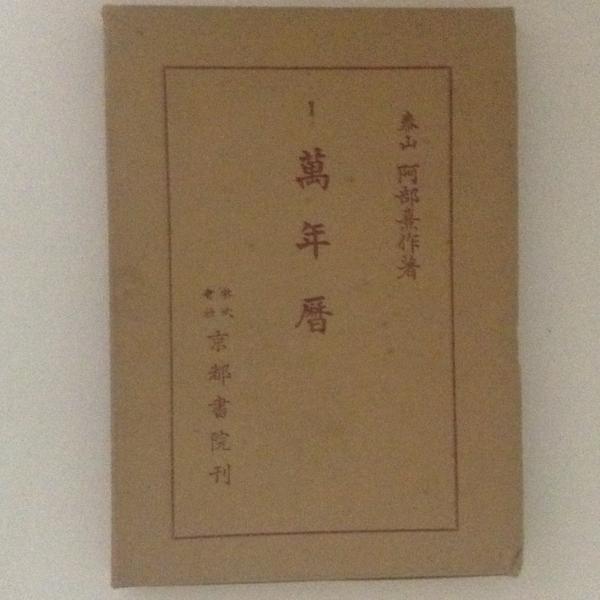 泰山 阿部熹作著
萬年暦
株式会社 京都書院刊